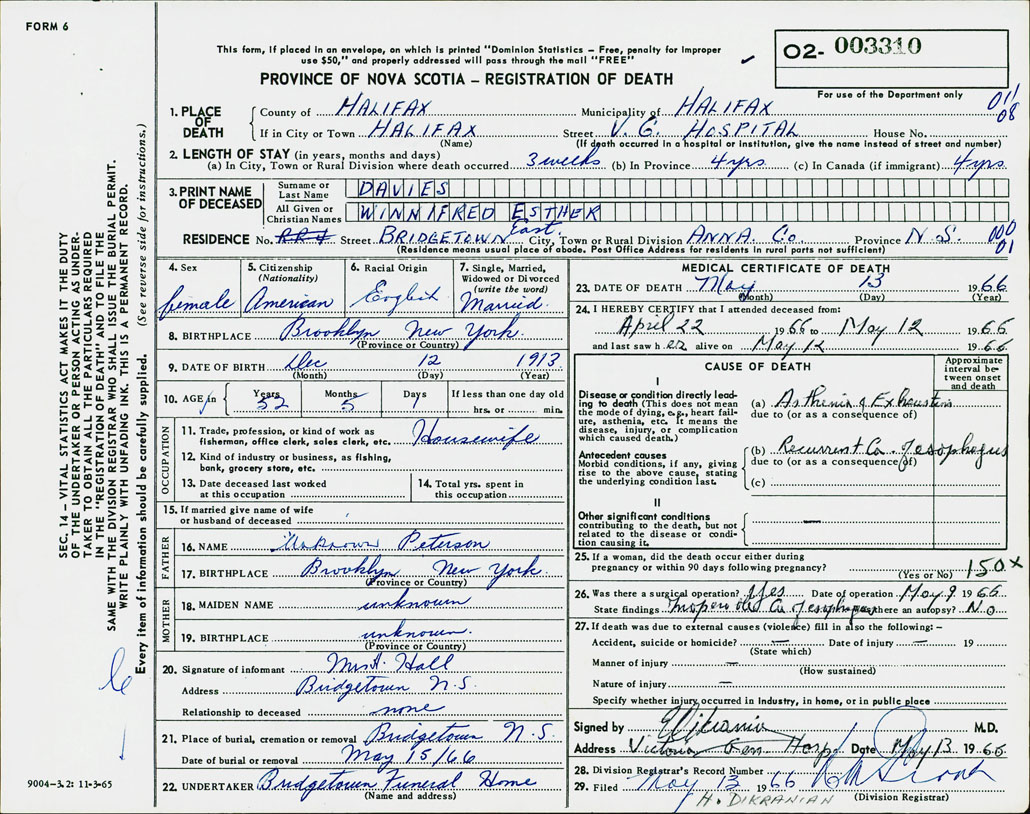 FORM 6
This form, if placed in an envelope, on which is printed "Dominion Statistics – Free, penalty for improper
use $50," and properly addressed will pass through the mail "FREE"
PROVINCE OF NOVA SCOTIA – REGISTRATION OF DEATH
02- 003310
For use of the Department only
011
08
1. PLACE OF DEATH
County of HALIFAX Municipality of HALIFAX
If in City or Town HALIFAX Street V. G. HOSPITAL House No.
(Name) (If death occurred in a hospital or institution, give the name instead of street and number)
2. LENGTH OF STAY (in years, months and days)
(a) In City, Town or Rural Division where death occurred 3 weeks (b) In Province 4 yrs. (c) In Canada (if immigrant) 4 yrs
3. PRINT NAME OF DECEASED
Surname or Last Name DAVIES
All Given or Christian Names WINNIFRED ESTHER
RESIDENCE No. RR4 Street BRIDGETOWN East. City, Town or Rural Division ANNA. Co. Province N.S.
000
01
(Residence means usual place of abode. Post Office Address for residents in rural parts not sufficient)
4. Sex
female
5. Citizenship (Nationality)
American
6. Racial Origin
English
7. Single, Married, Widowed or Divorced (write the word)
Married.
8. BIRTHPLACE Brooklyn New York.
(Province or Country)
9. DATE OF BIRTH Dec 12 1913
(Month) (Day) (Year)
10. AGE in Years 52 Months 5 Days 1 If less than one day old
hrs. or min.
OCCUPATION
11. Trade, profession, or kind of work as fisherman, office clerk, sales clerk, etc. Housewife
12. Kind of industry or business, as fishing, bank, grocery store, etc.
13. Date deceased last worked at this occupation
14. Total yrs. spent in this occupation
15. If married give name of wife or husband of deceased
FATHER
16. NAME Unknown Peterson
17. BIRTHPLACE Brooklyn New York.
(Province or Country)
MOTHER
18. MAIDEN NAME unknown
19. BIRTHPLACE unknown.
(Province or Country)
20. Signature of informant Mrs A. Hall
Address Bridgetown N.S.
Relationship to deceased none
21. Place of burial, cremation or removal Bridgetown N.S.
Date of burial or removal May 15/66
22. UNDERTAKER Bridgetown Funeral Home
(Name and address)
MEDICAL CERTIFICATE OF DEATH
23. DATE OF DEATH May 13 1966
(Month) (Day) (Year)
24. I HEREBY CERTIFY that I attended deceased from:
April 22 1966 to May 12 1966
and last saw her alive on May 12 1966
CAUSE OF DEATH
Approximate interval between onset and death
I
Disease or condition directly leading to death (This does not mean the mode of dying, e.g., heart failure, asthenia, etc. It means the disease, injury, or complication which caused death.)
(a) Asthenia & Exhaustion
due to (or as a consequence of)
Antecedent causes
Morbid conditions, if any, giving rise to the above cause, stating the underlying condition last.
(b) Recurrent Ca. of esophagus
due to (or as a consequence of)
(c)
II
Other significant conditions
contributing to the death, but not related to the disease or condition causing it.
25. If a woman, did the death occur either during
pregnancy or within 90 days following pregnancy?
(Yes or No)
150 X
26. Was there a surgical operation? Yes Date of operation May 9 1966
State findings Inoperable Ca of esophagus Was there an autopsy? No
27. If death was due to external causes (violence) fill in also the following: –
Accident, suicide or homicide? — Date of injury — 19
(State which)
Manner of injury —
(How sustained)
Nature of injury —
Specify whether injury occurred in industry, in home, or in public place
Signed by M.D.
Address Victoria Gen Hosp Date May 13 1966
28. Division Registrar's Record Number
29. Filed May 13 1966
(Division Registrar)
H. DIKRANIAN
SEC. 14 – VITAL STATISTICS ACT MAKES IT THE DUTY
OF THE UNDERTAKER OR PERSON ACTING AS UNDER-
TAKER TO OBTAIN ALL THE PARTICULARS REQUIRED
IN THE "REGISTRATION OF DEATH" AND TO FILE THE
SAME WITH THE DIVISION REGISTRAR WHO SHALL ISSUE THE BURIAL PERMIT.
WRITE PLAINLY WITH UNFADING INK. THIS IS A PERMANENT RECORD.
Every item of information should be carefully supplied. (See reverse side for instructions.)
9004-3.2: 11-3-65